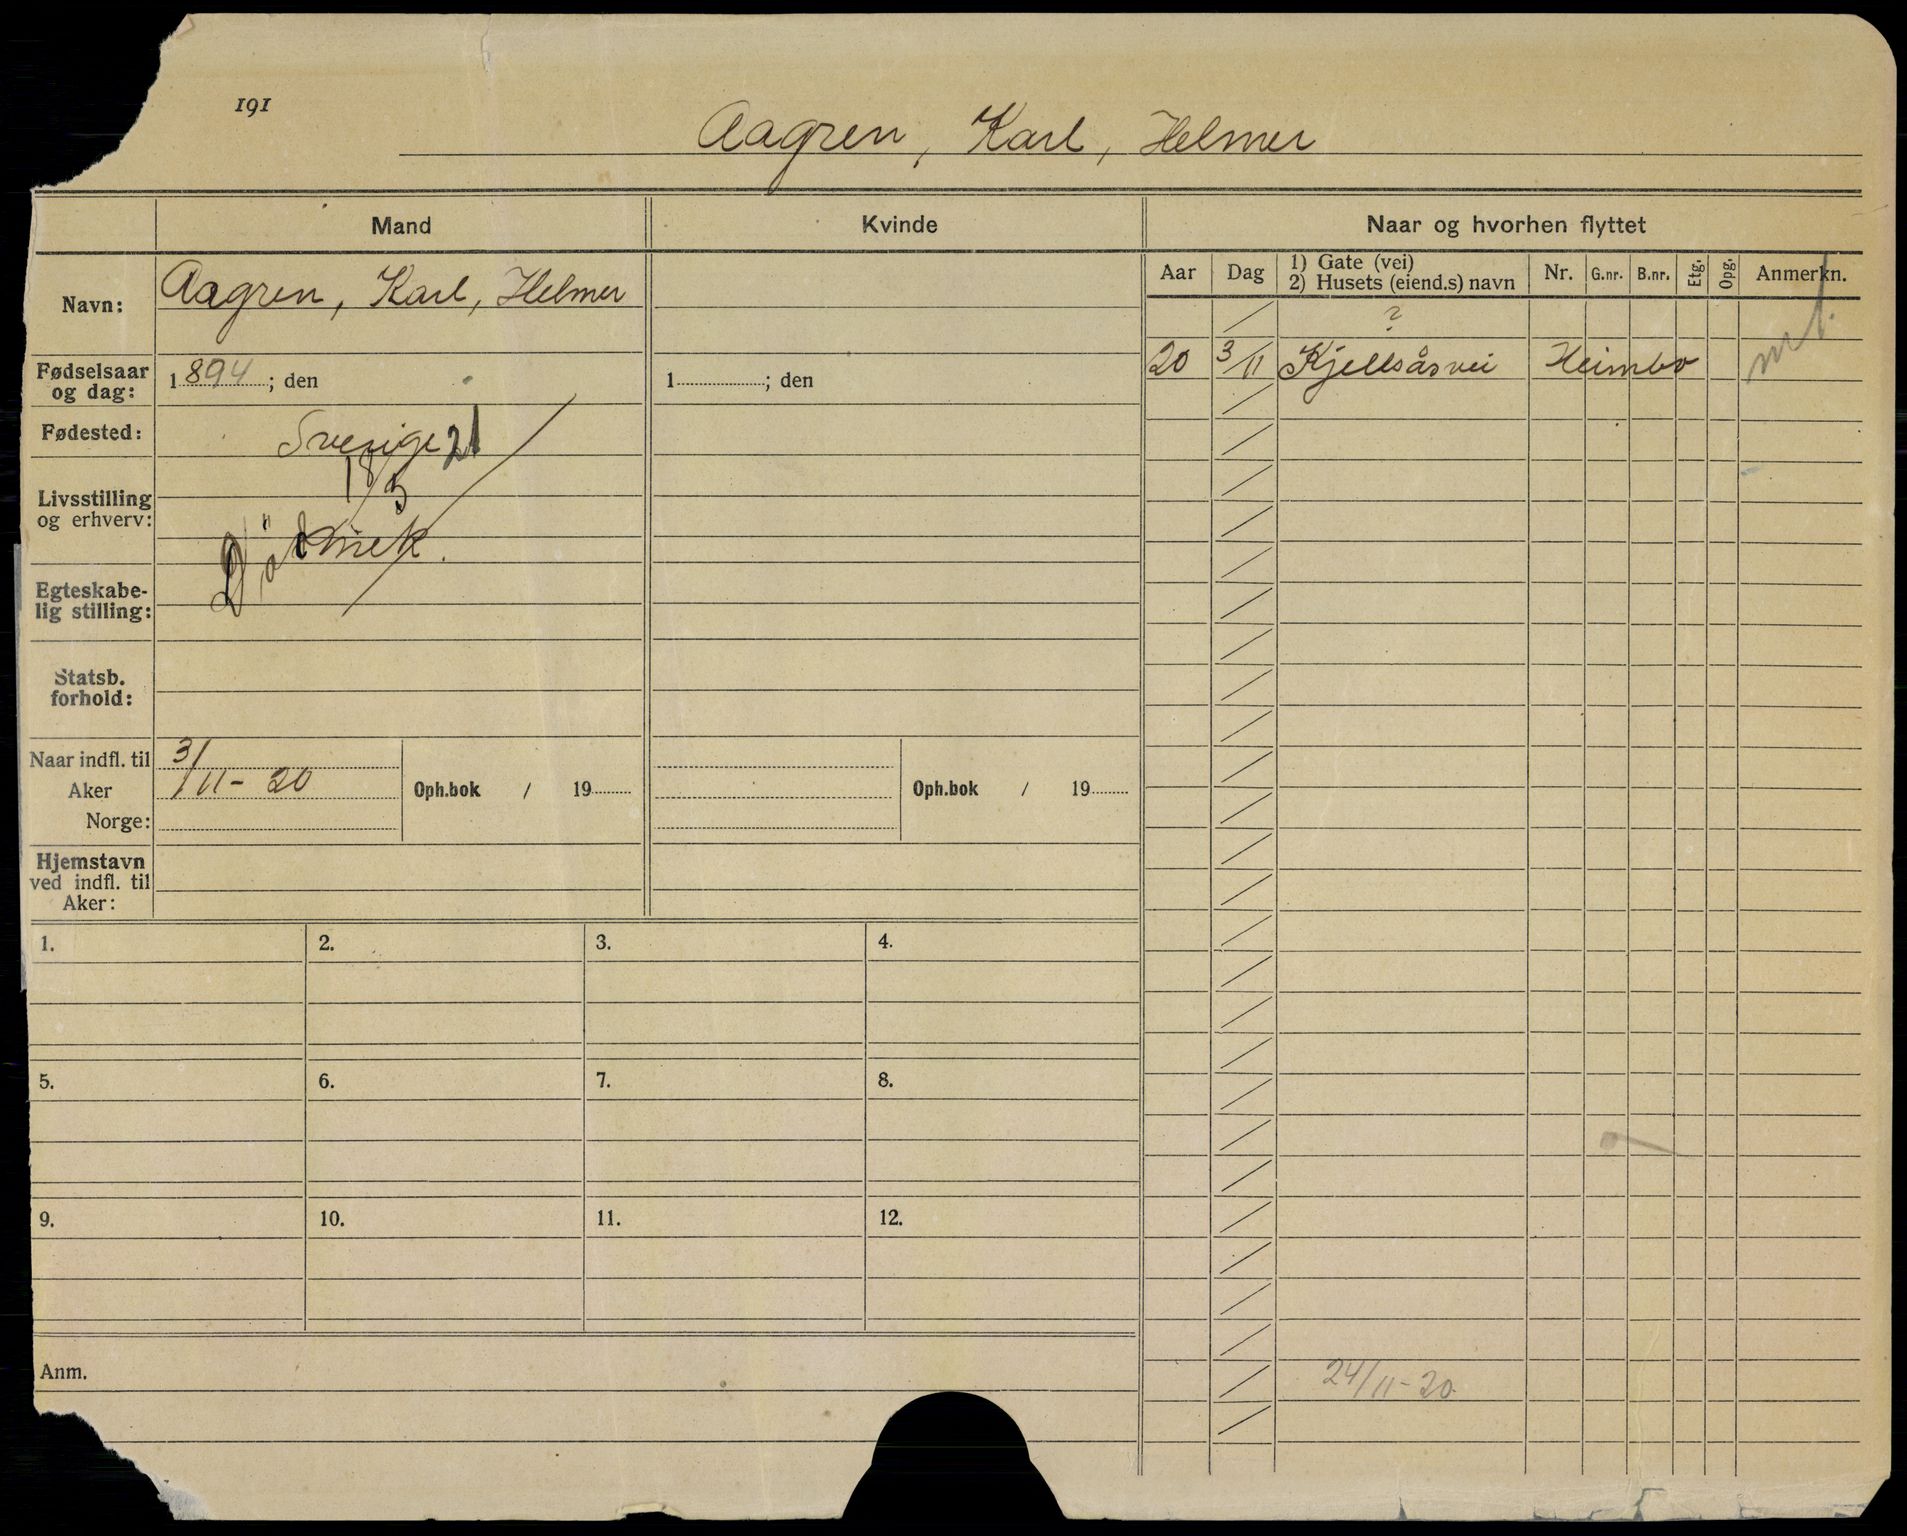 191
Aagren, Karl, Helmer
Mand Kvinde Naar og hvorhen flyttet
Aar Dag 1) Gate (vei) 2) Husets (eiend.s) navn Nr. G.nr. B.nr. Etg. Opg. Anmerkn.
Navn: Aagren, Karl, Helmer
?
20 3/11 Kjellsåsvei Heimbo
Fødselsaar og dag: 1894; den 1; den
Fødested: Sverige
18/5 21
Livsstilling og erhverv: mek.
Död
Egteskabelig stilling:
Statsb. forhold:
Naar indfl. til
Aker 3/11-20 Oph.bok / 19 Oph.bok / 19
Norge:
Hjemstavn
ved indfl. til
Aker:
1. 2. 3. 4.
5. 6. 7. 8.
9. 10. 11. 12.
Anm.
24/11-20.